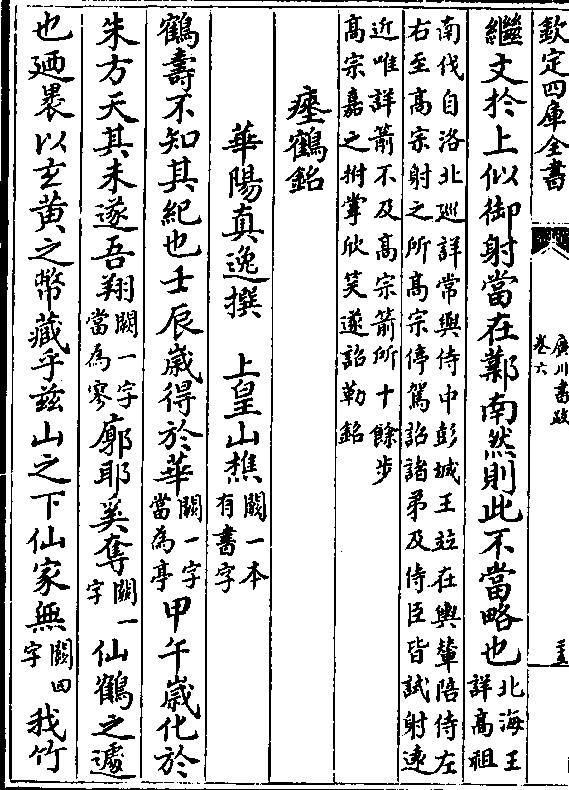 欽定四庫全書
廣川書跋
卷六
繼文於上似御射當在鄴南然則此不當略也北海王
詳高祖
南伐自洛北巡詳常與侍中彭城王竝在輿輦陪侍左
右至高宗射之所高宗停駕詔諸弟及侍臣皆試射遠
近唯詳箭不及高宗箭所十餘步
高宗嘉之拊掌欣笑遂詔勒銘
瘞鶴銘
華陽真逸撰 上皇山樵闕一本有書字
鶴壽不知其紀也壬辰歲得於華闕一字當為亭甲午歲化於
朱方天其未遂吾翔闕一字當為寥廓耶奚奪闕一字仙鶴之遽
也廼裹以玄黃之幣藏乎兹山之下仙家無闕四字我竹